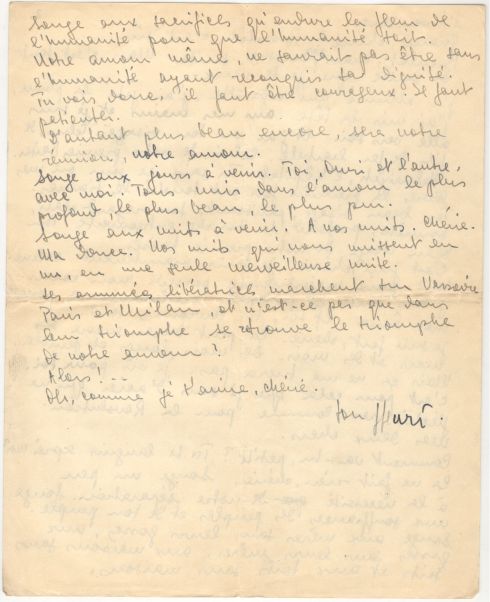 Songe aux sacrifices qu'endure la fleur de
l'humanité pour que l'humanité soit.
Notre amour même, ne saurait pas être sans
l'humanité ayant reconquis sa dignité.
Tu vois donc, il faut être courageux. Il faut
patienter.
D'autant plus beau encore, sera notre
réunion, notre amour.
Songe aux jours à venir. Toi, et l'autre,
avec moi. Tous unis dans l'amour le plus
profond, le plus beau, le plus pur.
Songe aux nuits à venir. A nos nuits. Chérie.
Ma douce. Nos nuits qui nous unissent en
un, en une seule merveilleuse unité.
Les armées libératrices marchent sur Varsovie
Paris et Milan, et n'est-ce pas que dans
leur triomphe se retrouve le triomphe
de notre amour?
Alors!...
Oh, comme je t'aime, chérie.
ton